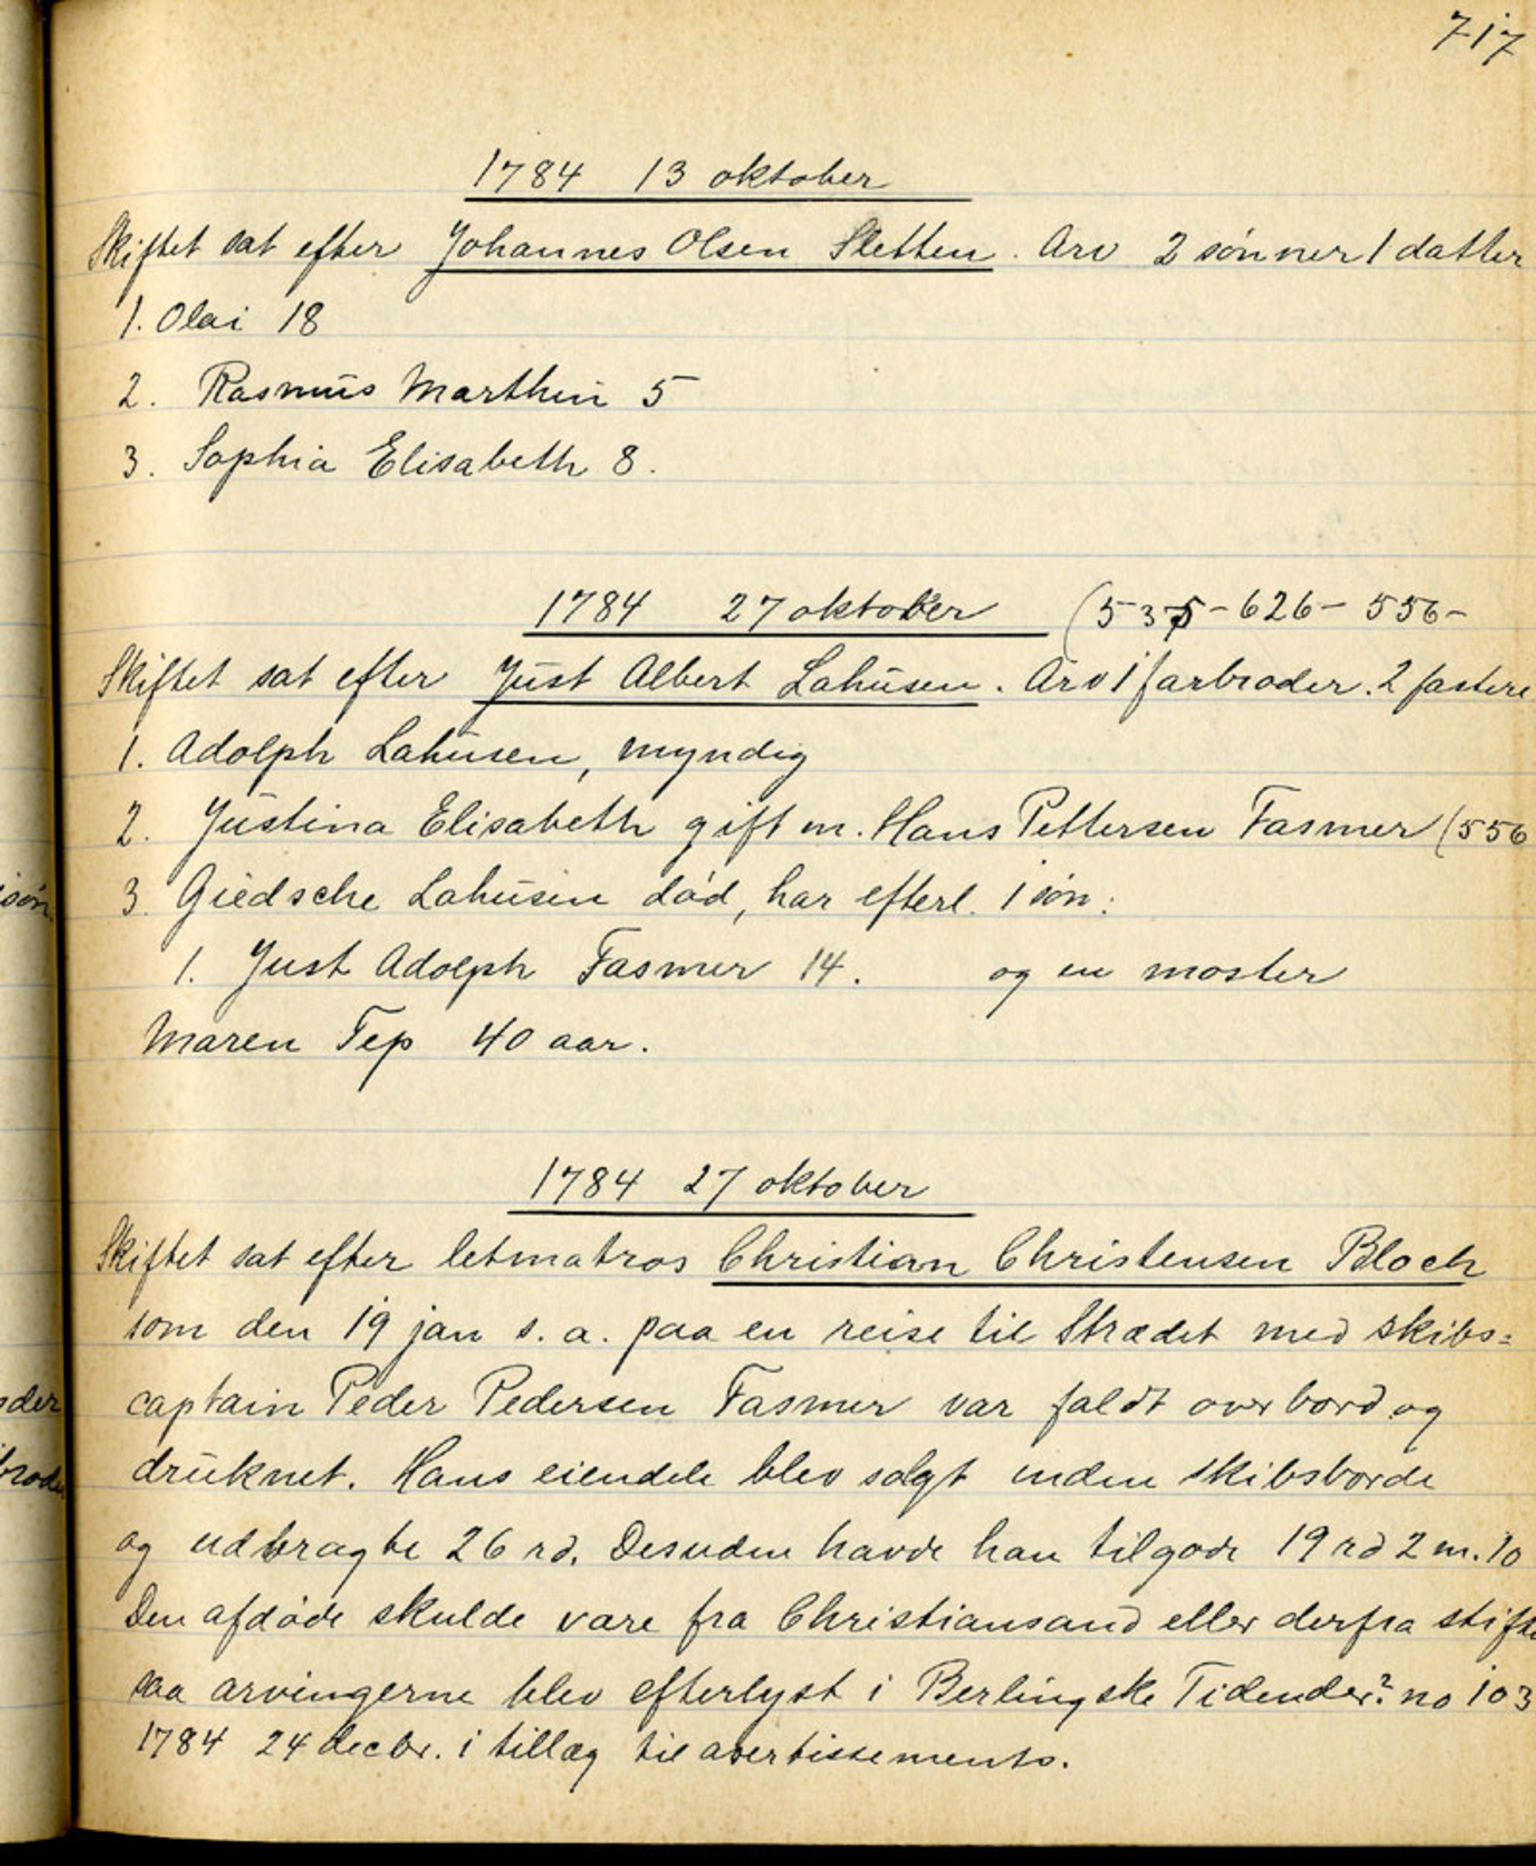 717
1784 13 oktober
Skiftet sat efter Johannes Olsen Sletten. Arv 2 sønner 1 datter
1. Olai 18
2. Rasmus Marthin 5
3. Sophia Elisabeth 8.
1784 27 oktober (535-626-556-
Skiftet sat efter Just Albert Lahusen. Arv 1 farbroder. 2 fastere
1. Adolph Lahusen, myndig
2. Justina Elisabeth gift m. Hans Pettersen Fasmer (556
3. Giedsche Lahusen død, har efterl. 1 søn:
1. Just Adolph Fasmer 14. og en moster
Maren Tep 40 aar.
1784 27 oktober
Skiftet sat efter letmatros Christian Christensen Bloch
som den 19 jan s. a. paa en reise til Strædet med skibs=
captain Peder Pedersen Fasmer var faldt overbord og
druknet. Hans eiendele blev solgt inden skibsborde
og udbragte 26 rd. Desuden havde han tilgode 19 rd 2 m. 10
Den afdøde skulde være fra Christiansand eller derfra stift
saa arvingerne blev efterlyst i Berlingske Tidender? no 103
1784 24 decbr. i tillæg til avertissements.
søn.
oder
brode